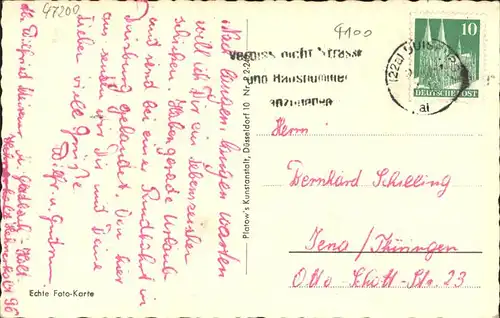 47200
4100
Vergiss nicht Strasse
und Hausnummer
anzugeben
(22a) DUISBURG
al
10
DEUTSCHE POST
Nach langem, langem warten
will ich Dir ein Lebenszeichen
schicken. Haben gerade Urlaub
und sind bei einer Rundfahrt in
Duisburg gelandet. Von hier
aus senden wir Dir und Deine
Lieben viele Grüße
Wilfr. u. Gudrun
Abs. Wilfried
M. Gladbach - Holt
96
Platow's Kunstanstalt, Düsseldorf 10 Nr. P 2/26
Herrn
Bernhard Schilling
Jena / Thüringen
Otto-Schott-Str. 23
Echte Foto-Karte